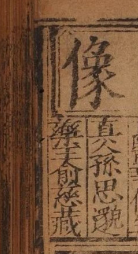 像
真人孫思邈
藥王俞慈藏